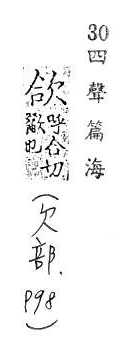 30 四聲篇海
欱 呼合切
歠也
(欠部. P98)